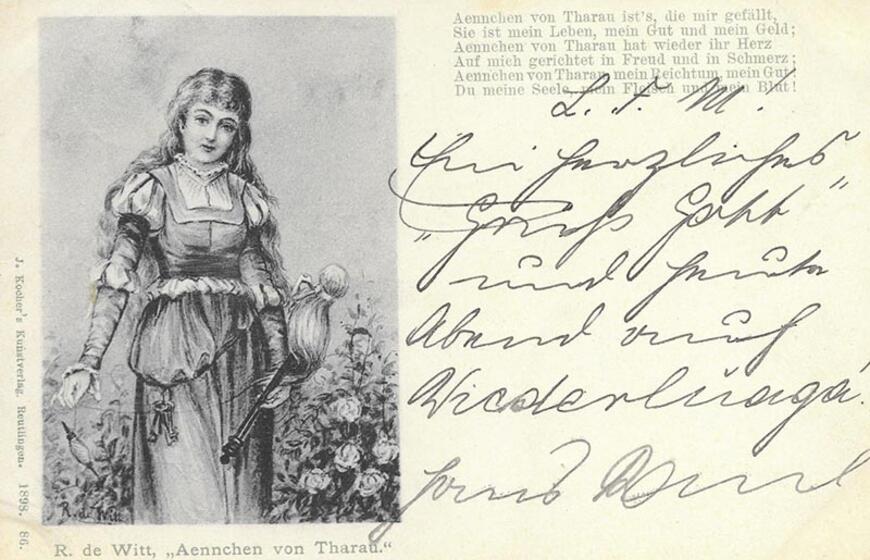 Aennchen von Tharau ist's, die mir gefällt,
Sie ist mein Leben, mein Gut und mein Geld;
Aennchen von Tharau hat wieder ihr Herz
Auf mich gerichtet in Freud und in Schmerz;
Aennchen von Tharau, mein Reichtum, mein Gut
Du meine Seele, mein Fleisch und mein Blut!
L. F. M.!
Ein herzliches
„Grüß Gott"
und heute
Abend auf
Wiederluaga.
R. de Witt
J. Kocher's Kunstverlag. Reutlingen. 1898. 86.
R. de Witt, „Aennchen von Tharau."